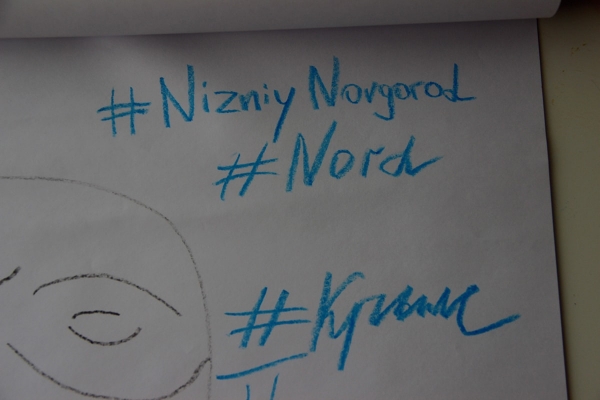 #Nizniy Novgorod
#Nord